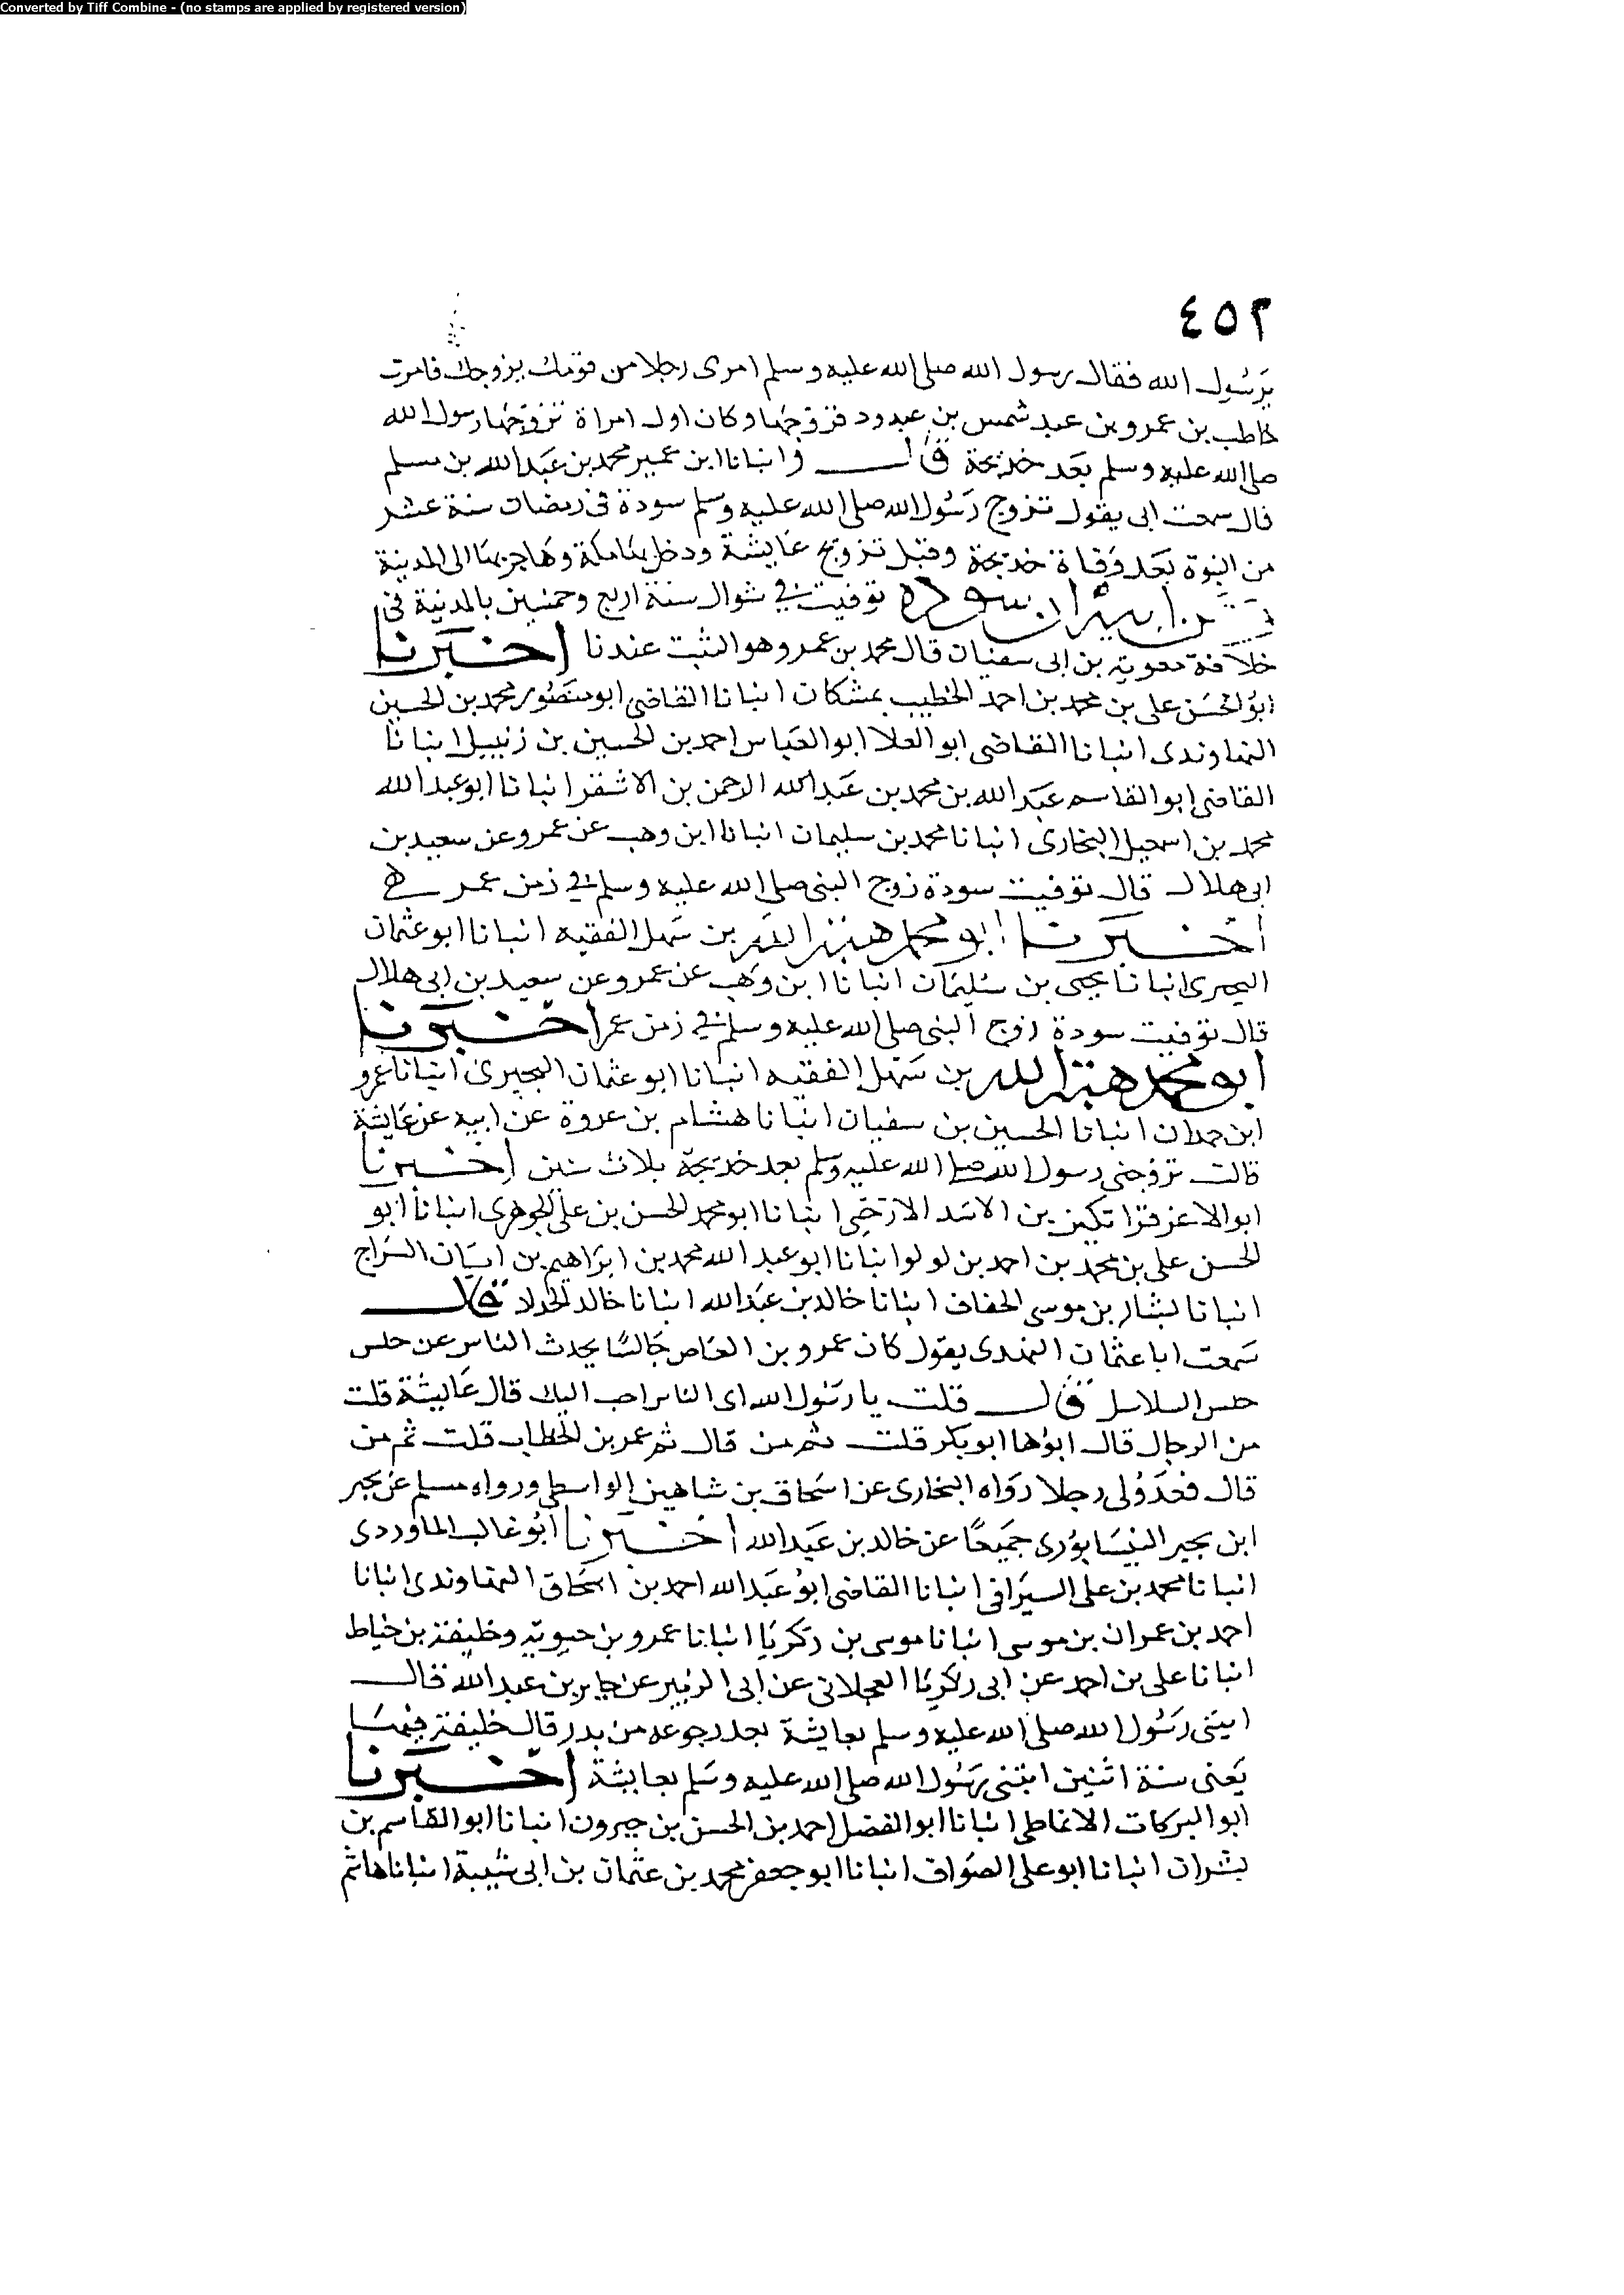 Converted by Tiff Combine - (no stamps are applied by registered version)
٤٥٢
يرسول الله فقال رسول الله صلى الله عليه وسلم امرى رجلا من قومك يزوجك فامرت
حاطب بن عمرو بن عبد شمس بن عبدود فزوجها وكان اول امراة تزوجها رسول الله
صلى الله عليه وسلم بعد خديجة قال وانبانا ابن عمير محمد بن عبدالله بن مسلم
قال سمعت ابى يقول تزوج رسول الله صلى الله عليه وسلم سودة فى رمضان سنة عشر
من النبوة بعد وفاة خديجة وقبل تزوج عايشة ودخل بها بمكة وهاجر بها الى المدينة
سودة توفيت في شوال سنة اربع وخمسين بالمدينة فى
خلافة معوية بن ابى سفيان قال محمد بن عمرو وهو الثبت عندنا اخبرنا
ابو الحسن على بن محمد بن احمد الخطيب بمشكان انبانا القاضى ابو منصور محمد بن الحسين
النهاوندى انبانا القاضى ابو العلا ابو العباس احمد بن الحسين بن زنبيل انبانا
القاضى ابو القاسم عبد الله بن محمد بن عبدالله الرحمن بن الاشقر انبانا ابو عبد الله
محمد بن اسمعيل البخارى انبانا محمد بن سليمان انبانا ابن وهب عن عمرو عن سعيد بن
ابى هلال قال توفيت سودة زوج النبى صلى الله عليه وسلم في زمن عمر
اخبرنا ابو محمد هبة الله بن سهل الفقيه انبانا ابو عثمان
انبانا يحيى بن سليمان انبانا ابن وهب عن عمرو عن سعيد بن ابى هلال
قال توفيت سودة زوج النبى صلى الله عليه وسلم في زمن عمر اخبرنا
ابو محمد هبة الله بن سهل الفقيه انبانا ابو عثمان البحيرى انبانا عمرو
ابن حمدان انبانا الحسين بن سفيان انبانا هشام بن عروة عن ابيه عن عايشة
قالت تزوجنى رسول الله صلى الله عليه وسلم بعد خديجة بلاث سنين اخبرنا
ابو الاعز قراتكين بن الاسد الازجى انبانا ابو محمد الحسن بن على الجوهرى انبانا ابو
الحسن على بن محمد بن احمد بن لولو انبانا ابو عبد الله محمد بن ابراهيم بن السراج
انبانا بشار بن موسى الخفاف انبانا خالد بن عبدالله انبانا خالد قال
سمعت ابا عثمان النهدى يقول كان عمرو بن العاص جالسا يحدث الناس عن حلس
حلس السلاسل قال قلت يا رسول الله اى الناس احب اليك قال عايشة قلت
من الرجال قال ابوها ابو بكر قلت ثم من قال ثم عمر بن الخطاب قلت ثم من
قال فعد لى رجلا رواه البخارى عن اسحاق بن شاهين الواسطى ورواه مسلم عن بجير
ابن بجير النيسابورى جميعا عن خالد بن عبدالله اخبرنا ابو غالب الماوردى
انبانا محمد بن على السيرافى انبانا القاضى ابو عبدالله احمد بن اسحاق النهاوندى انبانا
احمد بن عمران بن موسى انبانا موسى بن زكريا انبانا عمرو بن حيوية وخليفة بن خياط
انبانا على بن احمد عن ابى زكريا العجلانى عن ابى الزبير عن جابر بن عبد الله قال
ابتنى رسول الله صلى الله عليه وسلم بعايشة بعد رجوعه من بدر قال خليفة فيها
يعنى سنة اثنين ابتنى رسول الله صلى الله عليه وسلم بعايشة اخبرنا
ابو البركات الانماطى انبانا ابو الفضل احمد بن الحسن بن خيرون انبانا ابو القاسم بن
بشران انبانا ابو على الصواف انبانا ابو جعفر محمد بن عثمان بن ابى شيبة انبانا هاشم